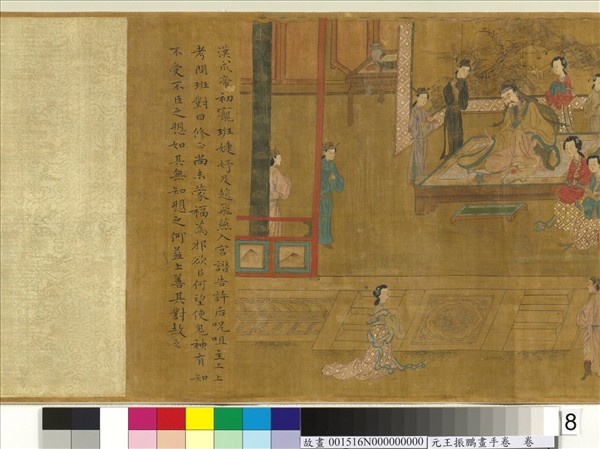 漢成帝初寵班婕妤及趙飛燕入宮譖告許后咒詛主上上
考問班對曰修正尚未蒙福為邪欲以何望使鬼神有知
不受不臣之愬如其無知愬之何益上善其對赦之
8
故畫 001516N000000000 元王振鵬畫手卷 卷